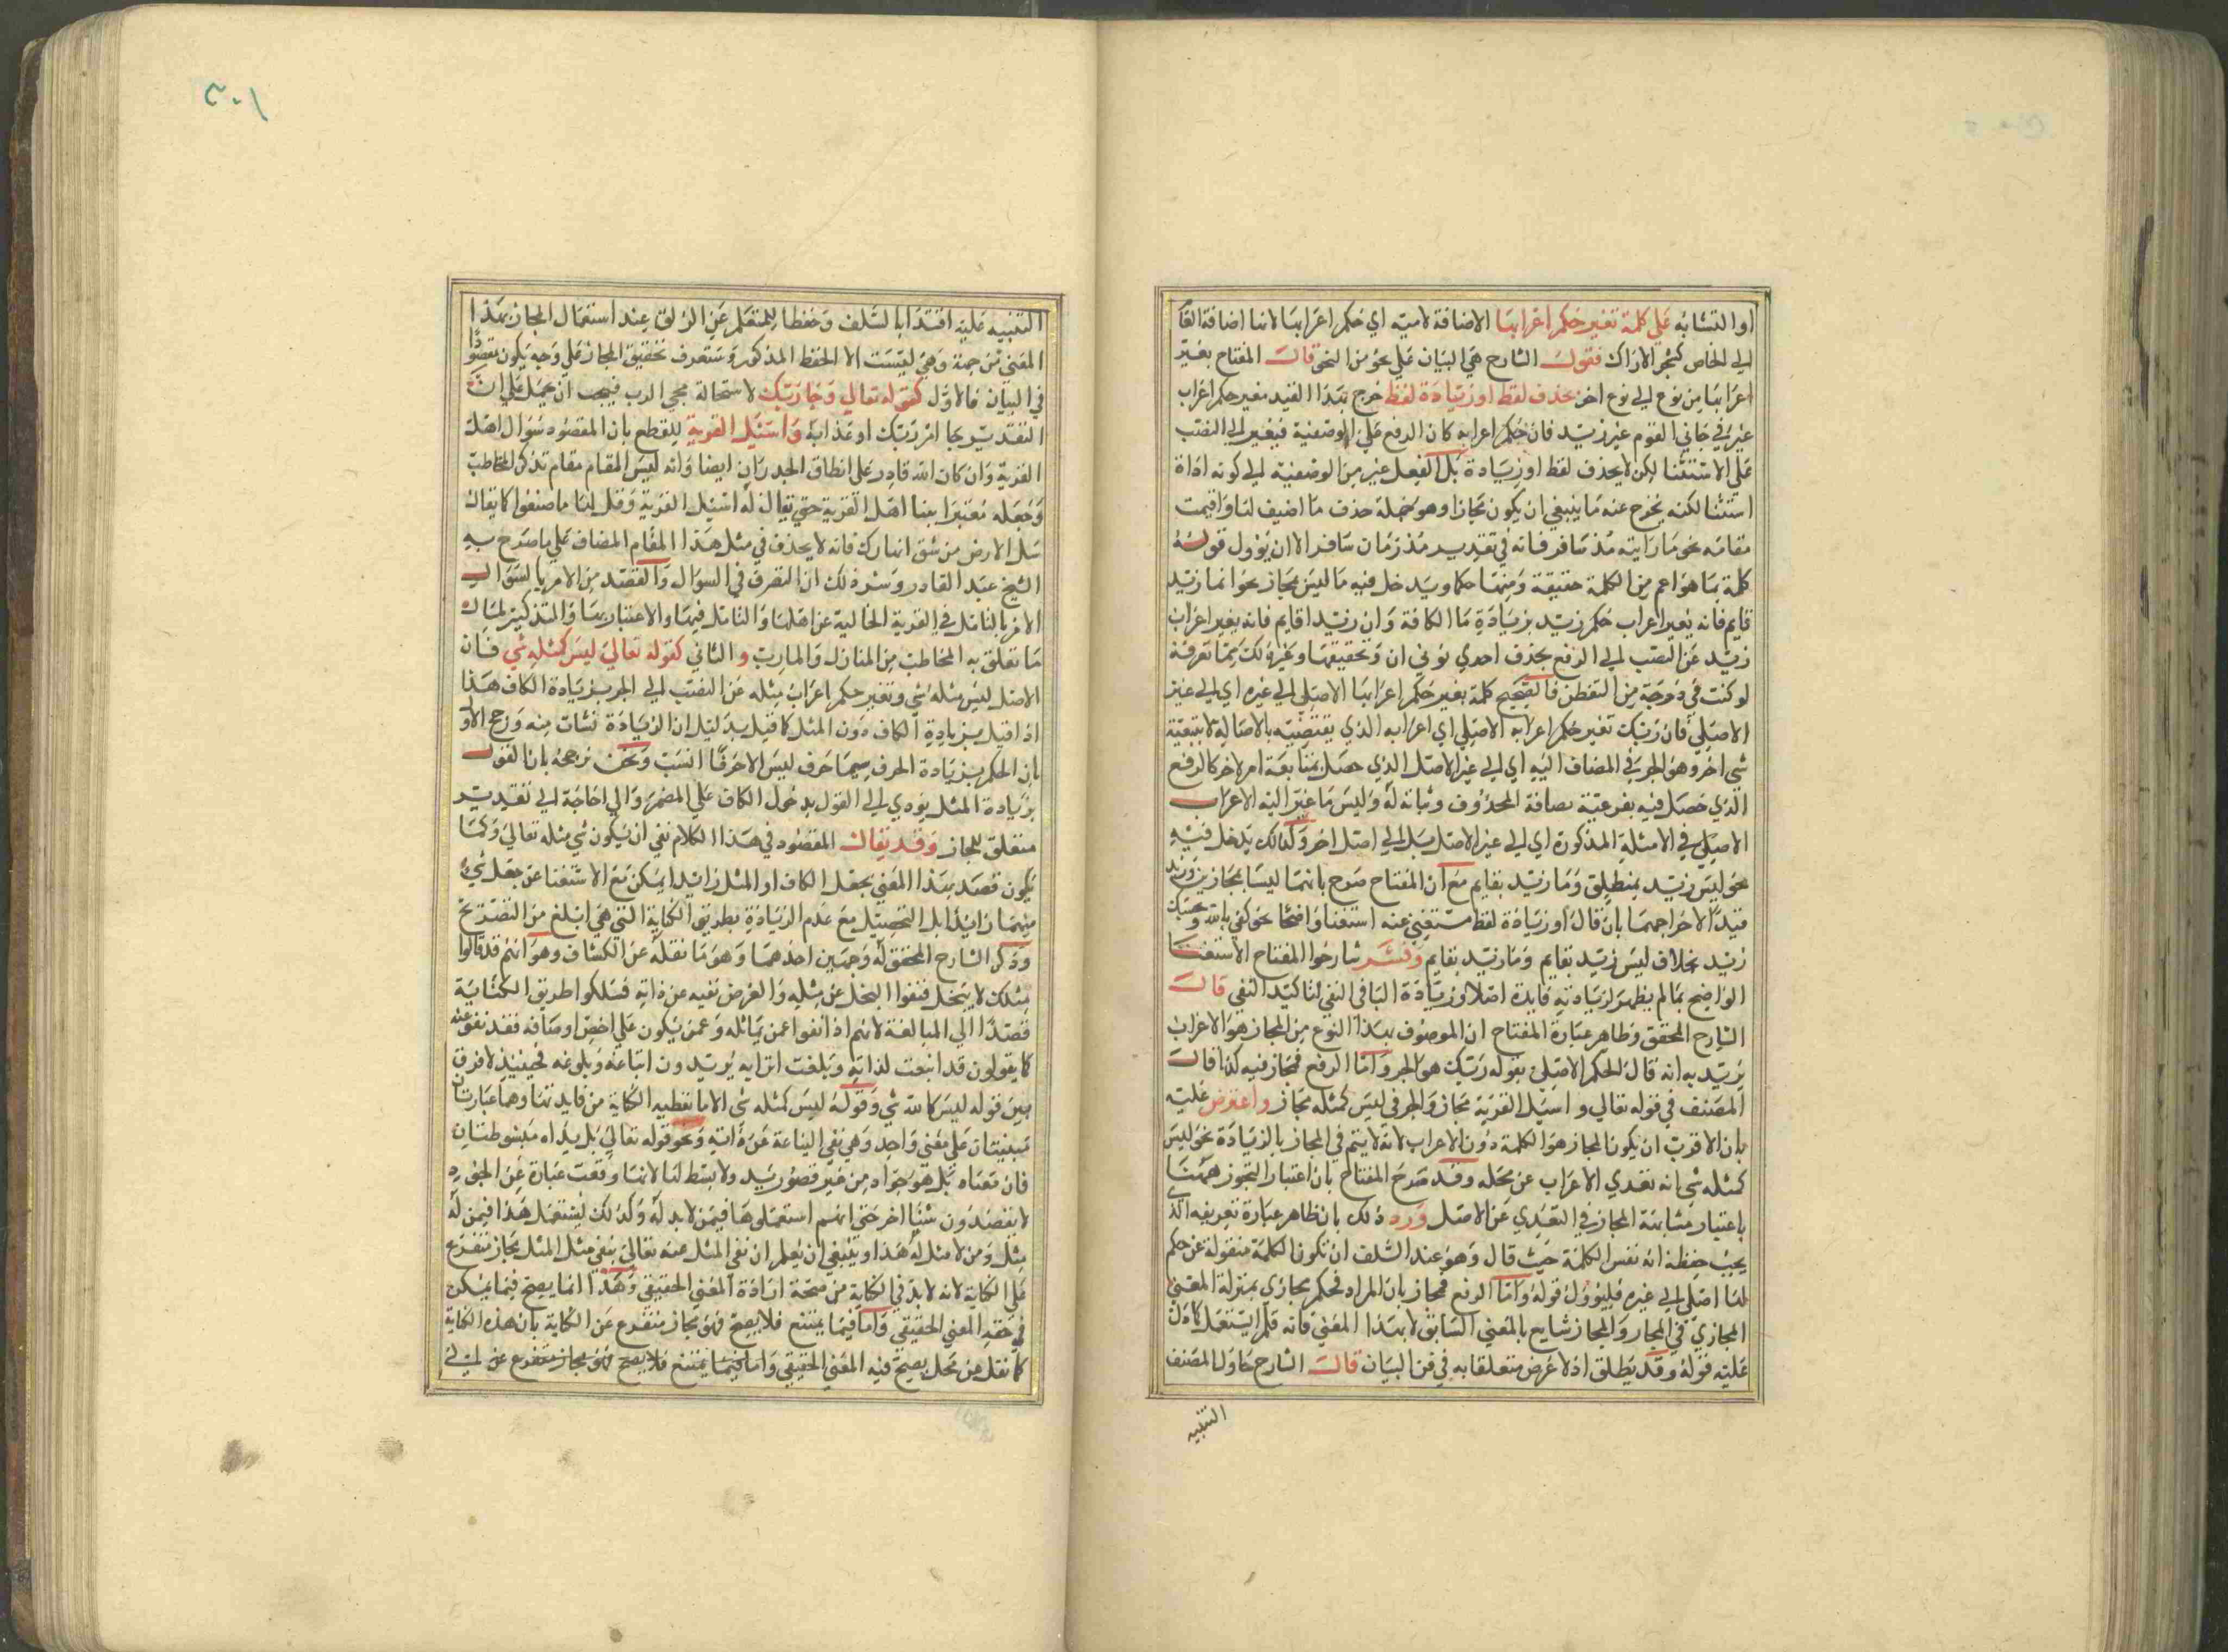 او التشابه على كلمة تغير حكم اعرابها الاضافة لامية اي حكم اعرابها لانها اضافة العام
الي الخاص كشجر الاراك فقول الشارح هي البيان علي نحو من النحو قال المفتاح بغير
اعرابها من نوع الي نوع اخر بحذف لفظ او زيادة لفظ خرج بهذا القيد مغير حكم اعراب
غير في جاني القوم غير زيد فان حكم اعرابه كان الرفع علي الوصفية فيغير الي النصب
علي الاستثنا لكن لا بحذف لفظ او زيادة بل الفعل غير من الوصفية الي كونه اداة
استثنا لكنه يخرج عنه ما ينبغي ان يكون مجازا وهو جملة حذف ما اضيف لها واقيمت
مقامه نحو ما رايته مذ سافر فانه في تقدير مذ زمان سافر الا ان يؤول قوله
كلمة بما هو اعم من الكلمة حقيقة ومنها حكما ويدخل فيه ما ليس بمجاز نحو انما زيد
قايم فانه يغير اعراب حكم زيد بزيادة ما الكافة وان زيدا قايم فانه يغير اعراب
زيد عن النصب الي الرفع بحذف احدي نوني ان وتحقيقها وغير ذلك مما تعرفه
لو كنت في درجة من التفطن فالصحيح كلمة بغير حكم اعرابها الاصلي الي غيره اي الي غير
الاصلي فان ربك تغير حكم اعرابه الاصلي اي اعرابه الذي يقتضيه بالاصالة لا بتبعية
شي اخر وهو الجر في المضاف اليه اي الي غير الاصل الذي حصل بمتابعة امر لاخر كالرفع
الذي حصل فيه بفرعية مضافه المحذوف ونيابته له وليس ما غير اليه الاعراب
الاصلي في الامثلة المذكورة اي الي غير الاصل بل الي اصل اخر وكذلك يدخل فيه
نحو ليس زيد بمنطلق وما زيد بقايم مع ان المفتاح صرح بانهما ليسا بمجازين وزيد
قيدا لاخراجهما بان قال او زيادة لفظ مستغني عنه استغنا واضحا نحو كفي بالله وبحسبك
زيد بخلاف ليس زيد بقايم وما زيد بقايم وفسر شارحوا المفتاح الاستغنا
الواضح بما لم يظهر لزيادته فايدة اصلا وزيادة البا في النفي لتاكيد النفي قال
الشارح المحقق وظاهر عبارة المفتاح ان الموصوف بهذا النوع من المجاز هو الاعراب
يريد به انه قال الحكم الاصلي بقوله ربك هو الجر واما الرفع فمجاز فيه كذا قال
المصنف في قوله تعالي واسئل القرية مجاز والجر في ليس كمثله مجاز واعترض عليه
بان الاقرب ان يكون المجاز هو الكلمة دون الاعراب لانه لا يتم في المجاز بالزيادة نحو ليس
كمثله شي انه تعدي الاعراب عن محله وقد صرح المفتاح بان اعتبار التجوز همنا
باعتبار مشابهة المجاز في التعدي عن الاصل ورد ذلك بان ظاهر عبارة تعريفه الذي
يجب حفظه انه نفس الكلمة حيث قال وهو عند السلف ان تكون الكلمة منقولة عن حكم
لها اصلي الي غيره فليؤول قوله واما الرفع فمجاز بان المراد فحكم مجازي بمنزلة المعني
المجازي في المجاز والمجاز شايع بالمعني السابق لا بهذا المعني فانه قلما يستعمل كما دل
عليه قوله وقد يطلق اذ لا غرض متعلقا به في فن البيان قال الشارح حاول المصنف
التنبيه
٢٠١
التنبيه عليه اقتدا بالسلف وحفظا للمتعلم عن الزلق عند استعمال المجاز بهذا
المعني من جهة وهي ليست الا الحفظ المذكور وستعرف تحقيق المجاز علي وجه يكون مقصودا
في البيان فالاول كقوله تعالي وجا ربك لاستحالة مجي الرب فيجب ان يحمل علي ان
التقدير جا امر ربك او عذابه واسئل القرية للقطع بان المقصود سؤال اهل
القرية وان كان الله قادر علي انطاق الجدران ايضا وانه ليس المقام مقام تذكر المخاطب
وجعله معتبرا بفنا اهل القرية حتي يقال له اسئل القرية وقل لها ما صنعوا كما يقال
سل الارض من شق انهارك فانه لا يحذف في مثل هذا المقام المضاف علي ما صرح به
الشيخ عبد القادر وسر ذلك ان التصرف في السؤال والقصد من الامر بالسؤال
الامر بالتامل في القرية الخالية عن اهلها والتامل فيها والاعتبار بها والتذكير لماك
ما تعلق به المخاطب من المنازل والمارب والثاني كقوله تعالي ليس كمثله شي فان
الاصل ليس مثله شي وتغير حكم اعراب مثله عن النصب الي الجر بزيادة الكاف هذا
اذا قيل بزيادة الكاف دون المثل كما قيل بدليل ان الزيادة نشات منه ورجح الاول
بان الحكم بزيادة الحرف سيما حرف ليس الا حرفا انسب ونحن نرجحه بان القول
بزيادة المثل يودي الي القول بدخول الكاف علي المضمر والي احاجة الي تقديد
متعلق للمجاز وقد يقال المقصود في هذا الكلام نفي ان يكون شي مثله تعالي وكما
يكون قصد بهذا المعني بجعل الكاف او المثل زائدا يمكن مع الاستغنا عن جعل شي
منهما زايدا بل التحصيل مع عدم الزيادة بطريق الكناية التي هي ابلغ من التصريح
وذكر الشارح المحقق له وجهين احدهما وهو ما نقله عن الكشاف وهو انهم قد قالوا
مثلك لا يبخل فنفوا البخل عن مثله والغرض نفيه عن ذاته فسلكوا طريق الكناية
قصدا الي المبالغة لانهم اذا نفوا عمن يماثله وعمن يكون علي اخص اوصافه فقد نفوه عنه
كما يقولون قد ايفعت لذاته وبلغت اترابه يريدون ايفاعه وبلوغه فحينيذ لا فرق
بين قوله ليس كالله شي وقوله ليس كمثله شي الا ما تعطيه الكناية من فايدتها وهما عبارتان
مبنيتان علي معني واحد وهي نفي المماثلة عن ذاته ونحو قوله تعالي بل يداه مبسوطتان
فان معناه بل هو جواد من غير تصور يد ولا بسط لها لانها وقعت عبارة عن الجود
لا يقصدون شيئا اخر حتي انهم استعملوها فيمن لا يد له وكذلك يستعمل هذا فيمن له
مثل ومن لا مثل له هذا وينبغي ان يعلم ان نفي المثل عنه تعالي بنفي مثل المثل مجاز متفرع
علي الكناية لانه لا بد في الكناية من صحة ارادة المعني الحقيقي وهذا انما يصح فيما يمكن
في حقه المعني الحقيقي واما فيما يمتنع فلا يصح فهو مجاز متفرع عن الكناية بان هذه الكناية
كما نقل من محل يصح فيه المعني الحقيقي واما فيما يمتنع فلا يصح فهو مجاز متفرع عن